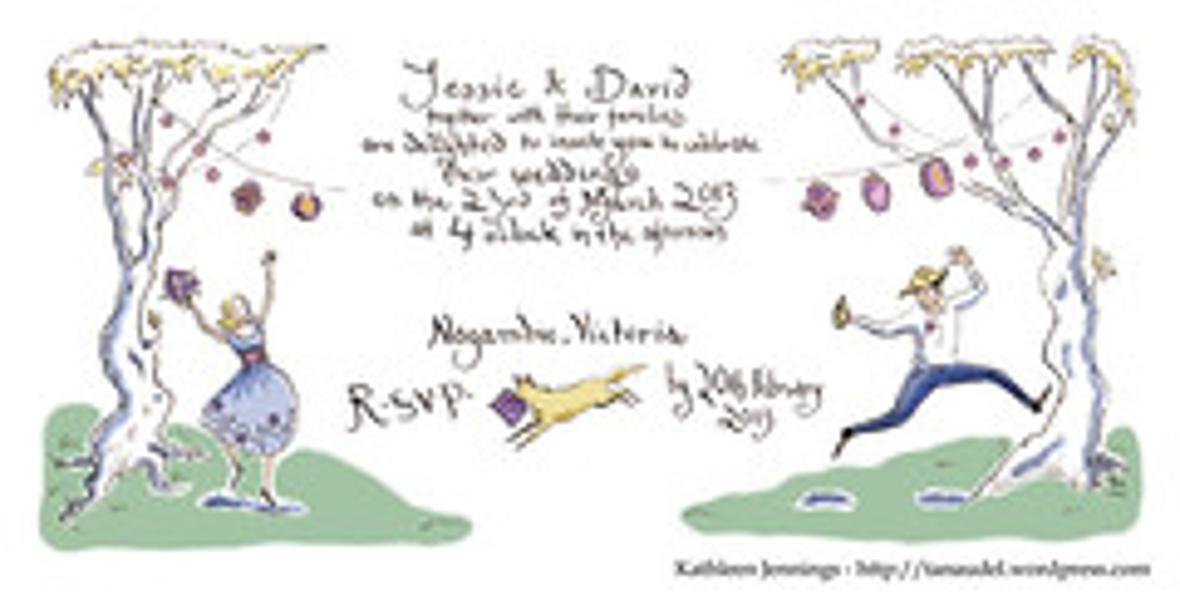 Jessie & David
together with their families
are delighted to invite you to celebrate
their wedding
on the 23rd of March 2013
at 4 o'clock in the afternoon
Victoria
R.SVP. by 20th February
2013
Kathleen Jennings - http://tanaudel.wordpress.com